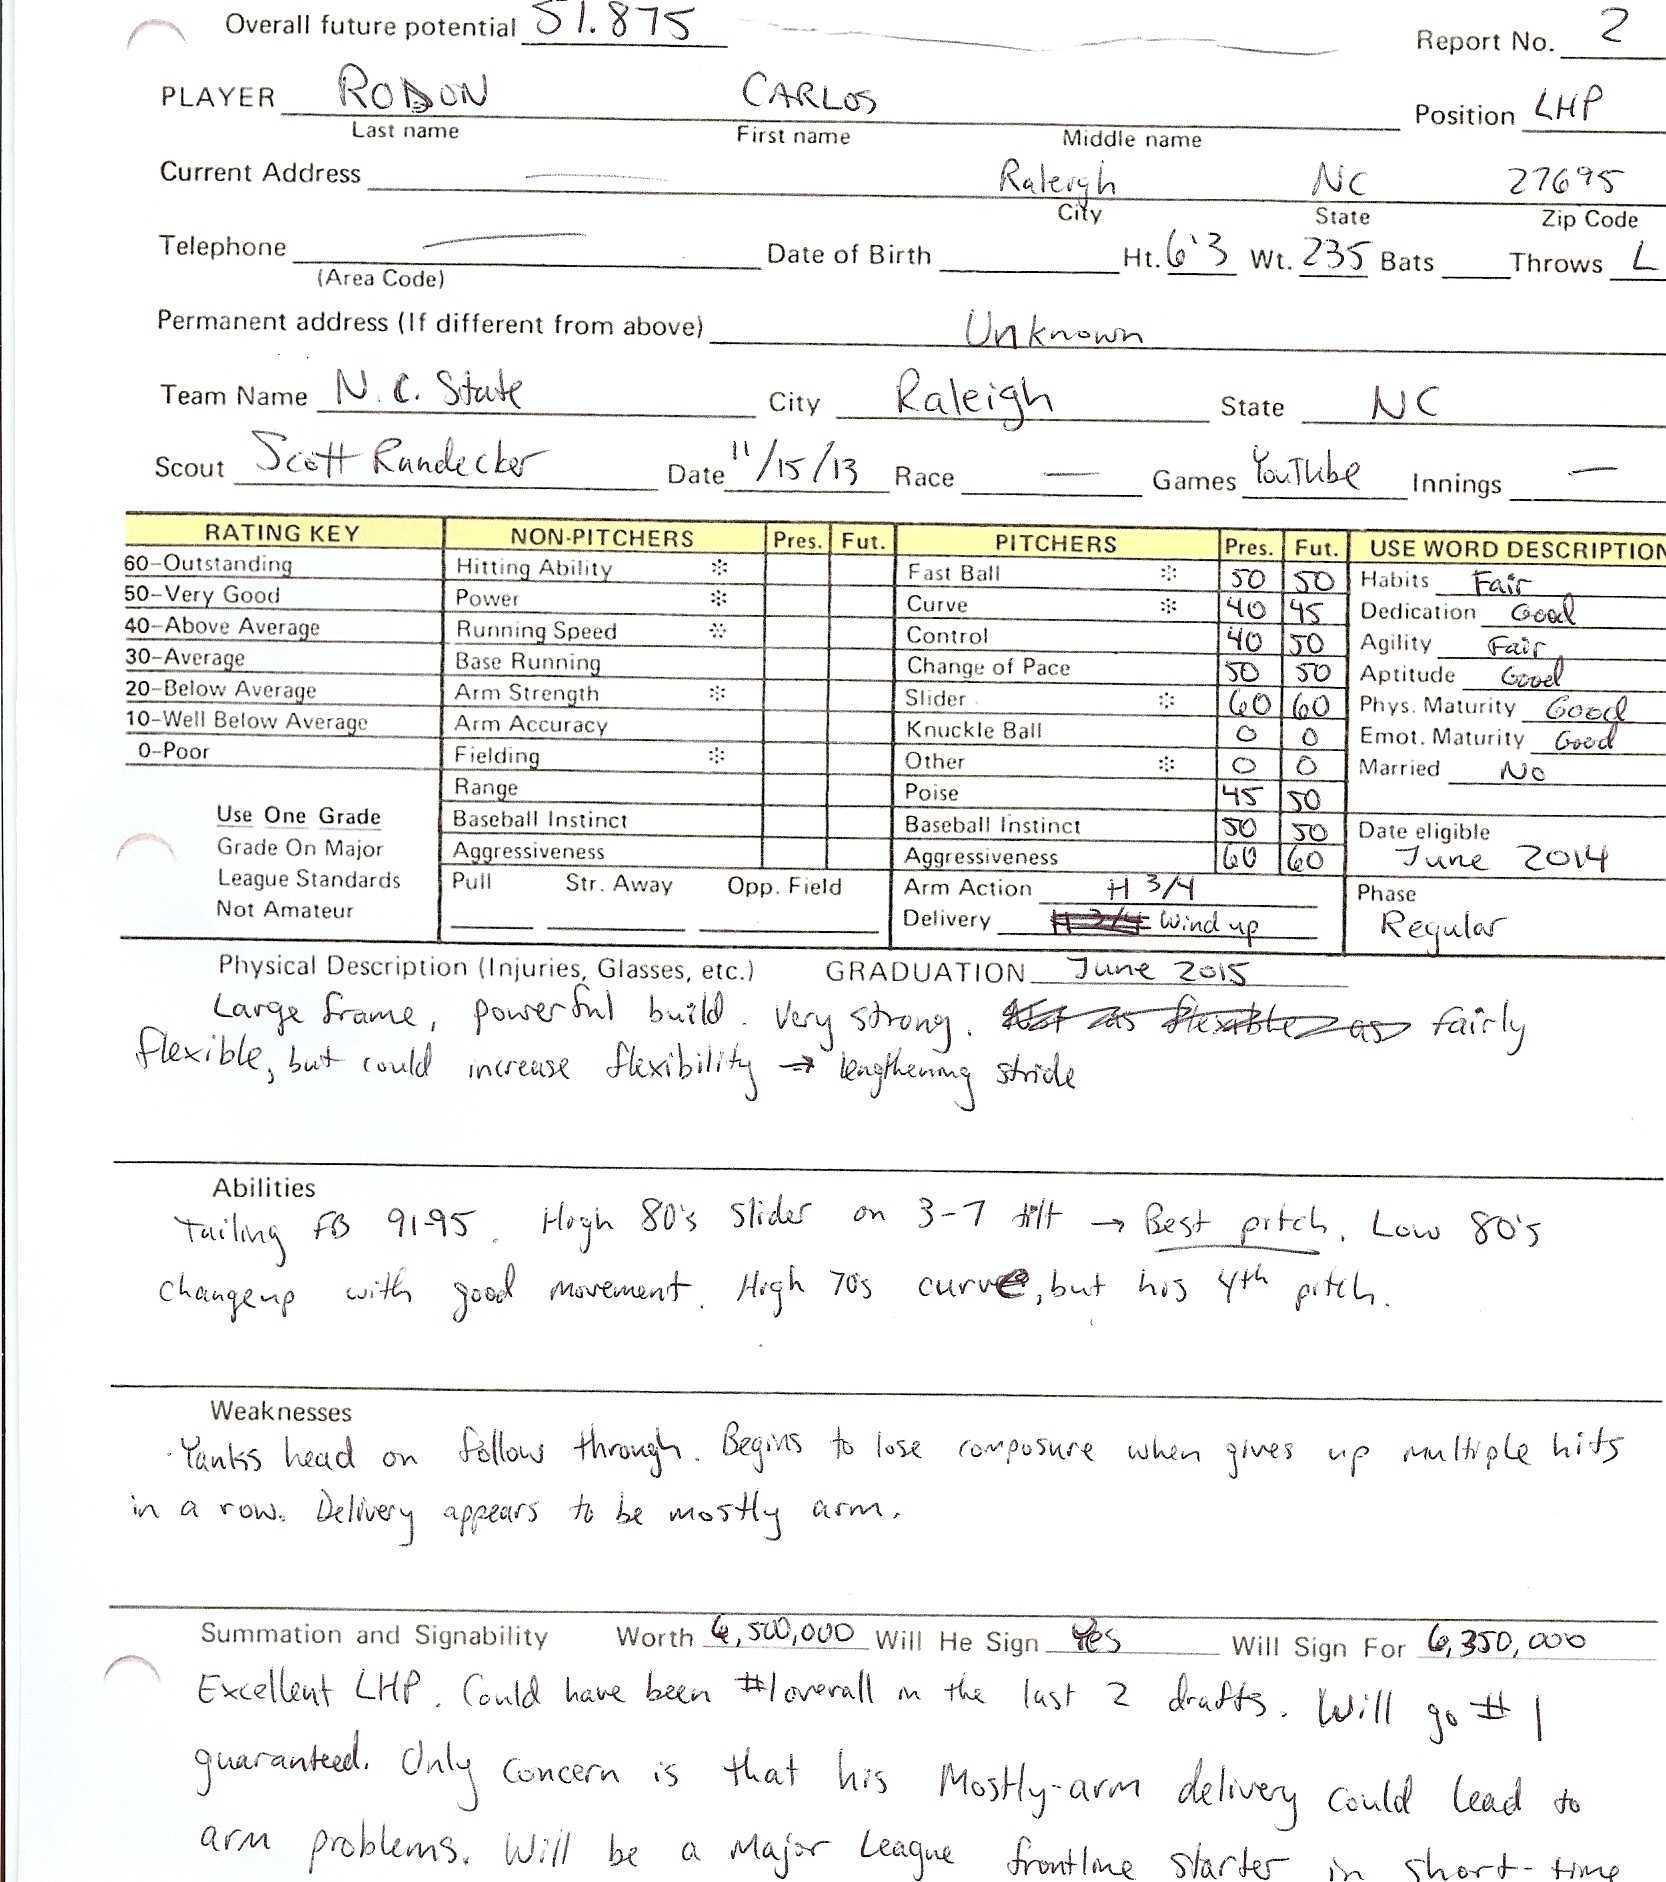 Overall future potential 51.875 Report No. 2
PLAYER RODON CARLOS Position LHP
Last name First name Middle name
Current Address Raleigh NC 27695
City State Zip Code
Telephone Date of Birth Ht. 6'3 Wt. 235 Bats Throws L
(Area Code)
Permanent address (If different from above) Unknown
Team Name N.C. State City Raleigh State NC
Scout Scott Randecker Date 11/15/13 Race — Games YouTube Innings —
RATING KEY NON-PITCHERS Pres. Fut. PITCHERS Pres. Fut. USE WORD DESCRIPTION
60-Outstanding Hitting Ability * Fast Ball * 50 50 Habits Fair
50-Very Good Power * Curve * 40 45 Dedication Good
40-Above Average Running Speed * Control 40 50 Agility Fair
30-Average Base Running Change of Pace 50 50 Aptitude Good
20-Below Average Arm Strength * Slider * 60 60 Phys. Maturity Good
10-Well Below Average Arm Accuracy Knuckle Ball 0 0 Emot. Maturity Good
0-Poor Fielding * Other * 0 0 Married No
Range Poise 45 50
Use One Grade Baseball Instinct Baseball Instinct 50 50 Date eligible
Grade On Major Aggressiveness Aggressiveness 60 60 June 2014
League Standards Pull Str. Away Opp. Field Arm Action H 3/4 Phase
Not Amateur Delivery H 3/4 Wind up Regular
Physical Description (Injuries, Glasses, etc.) GRADUATION June 2015
Large frame, powerful build. Very strong. Not as flexible as fairly
flexible, but could increase flexibility → lengthening stride
Abilities
Tailing FB 91-95. High 80's slider on 3-7 tilt → Best pitch. Low 80's
changeup with good movement. High 70s curve, but his 4th pitch.
Weaknesses
Yanks head on follow through. Begins to lose composure when gives up multiple hits
in a row. Delivery appears to be mostly arm.
Summation and Signability Worth 6,500,000 Will He Sign Yes Will Sign For 6,350,000
Excellent LHP. Could have been #1 overall in the last 2 drafts. Will go #1
guaranteed. Only concern is that his Mostly-arm delivery could lead to
arm problems. Will be a Major League frontline starter in short-time